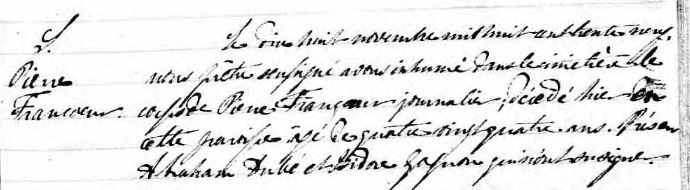 S.
Pierre
Francoeur.
Le dix huit novembre mil huit cent trente neuf,
nous prêtre soussigné avons inhumé dans le cimetière le
corps de Pierre Francoeur journalier, décédé hier en
cette paroisse âgé de quatre vingt quatre ans. Présen
Abraham Aubé et Isidore Gagnon qui n'ont su signer.